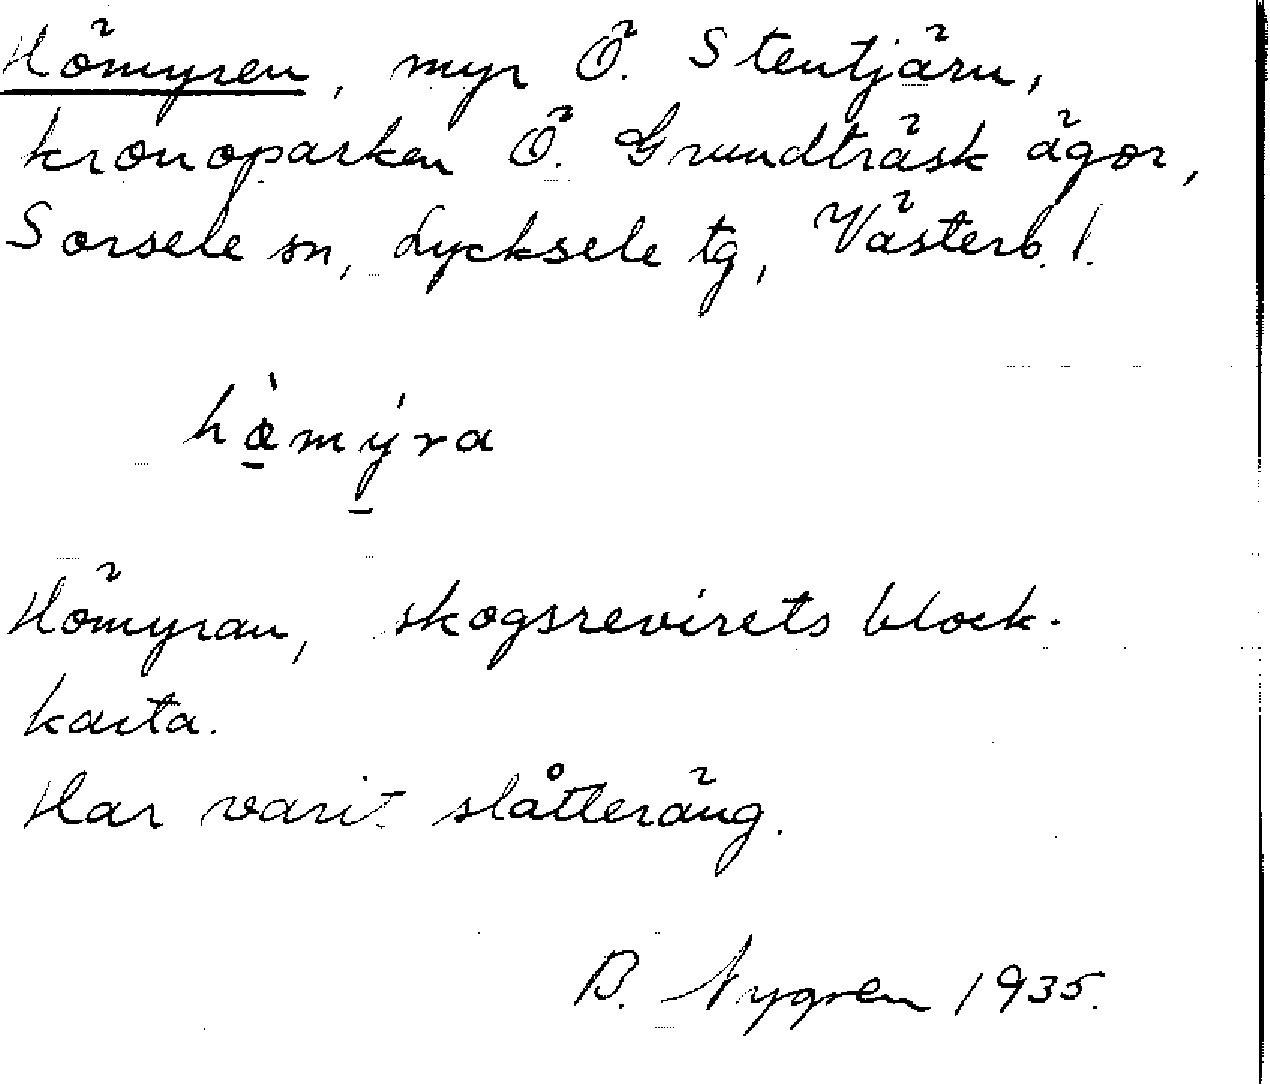 Hömyren, myr Ö. Stentjärn,
kronoparken Ö. Grundträsk ägor,
Sorsele sn, Lycksele tg, Västerb. l.
hö̀mýra
Hömyran, skogsrevirets block-
karta.
Har varit slåtteräng.
B. Nygren 1935.